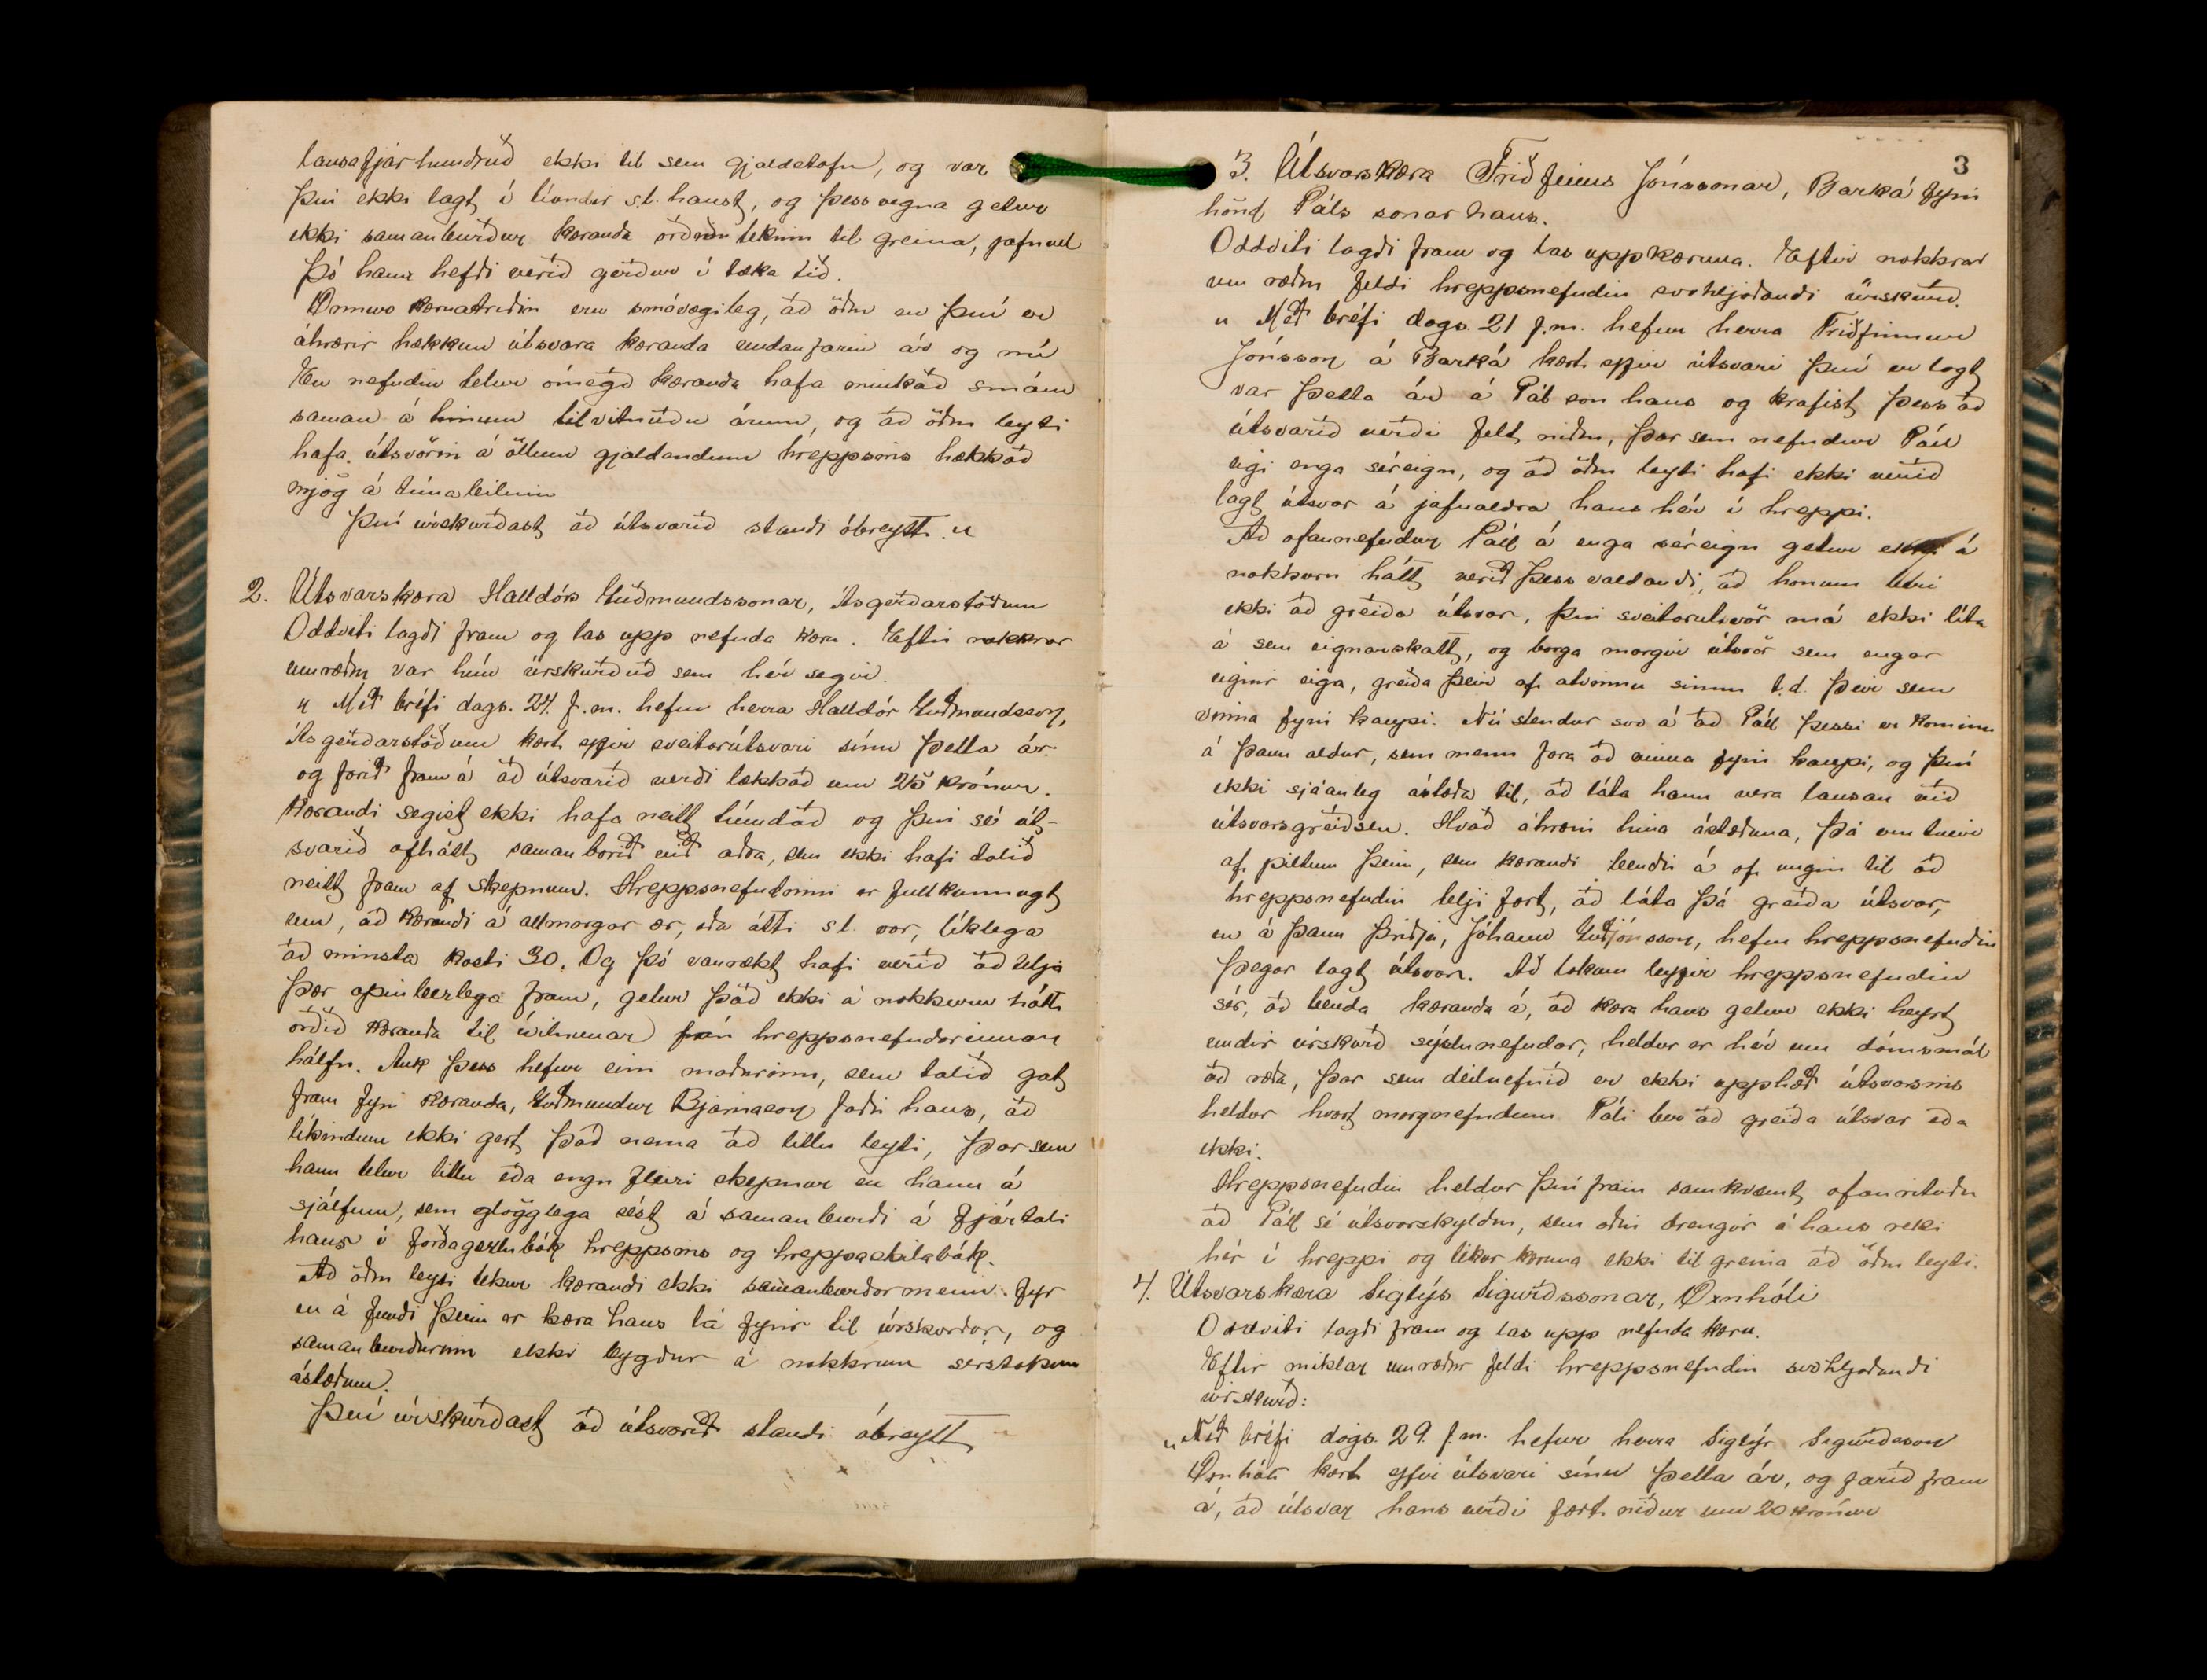 lausafjárhundruð ekki til sem gjaldstofn, og var
því ekki lagt í tíundir s.l. haust, og þess vegna getur
ekki samanburður kæranda orðið tekinn til greina, jafnvel
þó hann hefði verið gerður í tæka tíð.
Önnur kæruatriðin eru smávægileg, að öðru en því er
áhrærir hækkun útsvara kæranda undanfarin ár og nú
En nefndin telur ómegð kæranda hafa minkað smám
saman á hinum tilvitnuðu árum, og að öðru leyti
hafa útsvörin á öllum gjaldendum hreppsins hækkað
mjög á tímabilinu
Því úrskurðast að útsvarið standi óbreytt."
2. Útsvarskæra Halldórs Guðmundssonar, Ásgerðarstöðum
Oddviti lagði fram og las upp nefnda kæru. Eftir nokkrar
umræður var hún úrskurðuð sem hér segir.
" Með bréfi dags. 24. f.m. hefur herra Halldór Guðmundsson,
Ásgerðarstöðum kært yfir sveitarútsvari sínu þetta ár
og farið fram á að útsvarið verði lækkað um 25 krónur.
Kærandi segist ekki hafa neitt tíundað og því sé út-
svarið ofhátt samanborið við aðra, sem ekki hafi talið
neitt fram af skepnum. Hreppsnefndinni er fullkunnugt
um, að kærandi á allmargar ær, eða átti s.l. vor, líklega
að minsta kosti 30. Og þó vanrækt hafi verið að telja
þær opinberlega fram, getur það ekki á nokkurn hátt
orðið kæranda til ívilnunar frá hreppsnefndarinnar
hálfu. Auk þess hefur eini maðurinn, sem talið gat
fram fyri kæranda, Guðmundur Bjarnason faðir hans, að
líkindum ekki gert það nema að litlu leyti, þar sem
hann telur litlu eða engu fleiri skepnur en hann á
sjálfum, sem glögglega sést á samanburði á fjártali
hans í forðagæzlubók hreppsins og hreppaskilabók.
Að öðru leyti tekur kærandi ekki samanburðarmenn fyr
en á fundi þeim er kæra hans lá fyrir til úrskurðar, og
samanburðurinn ekki bygður á nokkrum sérstökum
ástæðum.
Því úrskurðast að útsvarið standi óbreytt
3
3. Útsvarskæra Friðfinns Jónssonar, Barká fyri
hönd Páls sonar hans.
Oddviti lagði fram og las upp kæruna. Eftir nokkrar
um ræður feldi hreppsnefndin svohljóðandi úrskurð.
" Með bréfi dags. 21 f.m. hefur herra Friðfinnur
Jónsson á Barká kært yfir útsvari því er lagt
var þetta ár á Pál son hans og krafist þess að
útsvarið verði felt niður, þar sem nefndur Páll
eigi enga séreign, og að öðru leyti hafi ekki verið
lagt útsvar á jafnaldra hans hér í hreppi.
Að ofannefndur Páll á enga séreign getur ekki á
nokkurn hátt verið þess valdandi, að honum beri
ekki að greiða útsvar, því sveitarútsvör má ekki líta
á sem eignarskatt, og borga margir útsvör sem engar
eignir eiga, greiða þeir af atvinnu sinni t.d. þeir sem
vinna fyri kaupi. Nú stendur svo á að Páll þessi er kominn
á þann aldur, sem menn fara að vinna fyri kaupi, og því
ekki sjáanleg ástæða til, að láta hann vera lausan við
útsvarsgreiðslu. Hvað áhræri hina ástæðuna, þá eru tveir
af piltum þeim, sem kærandi bendir á of ungir til að
hreppsnefndin telji fært, að láta þá greiða útsvar,
en á þann þriðja, Jóhann Guðjónsson, hefur hreppsnefndin
þegar lagt útsvar. Að lokum leyfir hreppsnefndin
sér, að benda kæranda á, að kæra hans getur ekki heyrt
undir úrskurð sýslunefndar, heldur er hér um dómsmál
að ræða, þar sem deiluefnið er ekki upphæð útsvarsins
heldur hvort margnefndum Páli ber að greiða útsvar eða
ekki.
Hreppsnefndin heldur því fram samkvæmt ofanrituðu
að Páll sé útsvarskyldur, sem aðrir drengir á hans reki
hér í hreppi og tekur kæruna ekki til greina að öðru leyti.
4. Útsvarskæra Sigtýs Sigurðssonar, Öxnhóli
Oddviti lagði fram og las upp nefnda kæru.
Eftir miklar umræður feldi hreppsnefndin svohljóðandi
úrskurð:
" Með bréfi dags. 29. f.m. hefur herra Sigtýr Sigurðsson
Öxnhóli kært yfir útsvari sínu þetta ár, og farið fram
á, að útsvar hans verði fært niður um 20 krónur